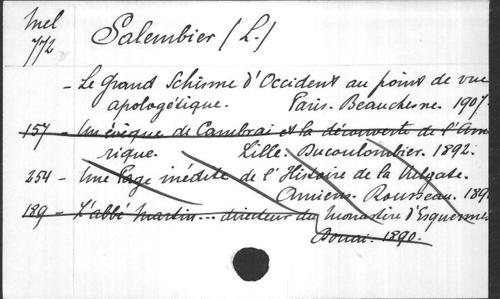 Mel
772
Salembier (L.)
- Le grand Schisme d'Occident au point de vue
apologétique. Paris. Beauchesne. 1907.
157 - Un évêque de Cambrai et la découverte de l'Amé
rique. Lille. Ducoulombier. 1892.
254 - Une Page inédite de l'Histoire de la Vulgate.
Amiens. Rousseau. 189
189 - L'abbé Martin... directeur du Monastère d'Esquermes
Douai. 1890.